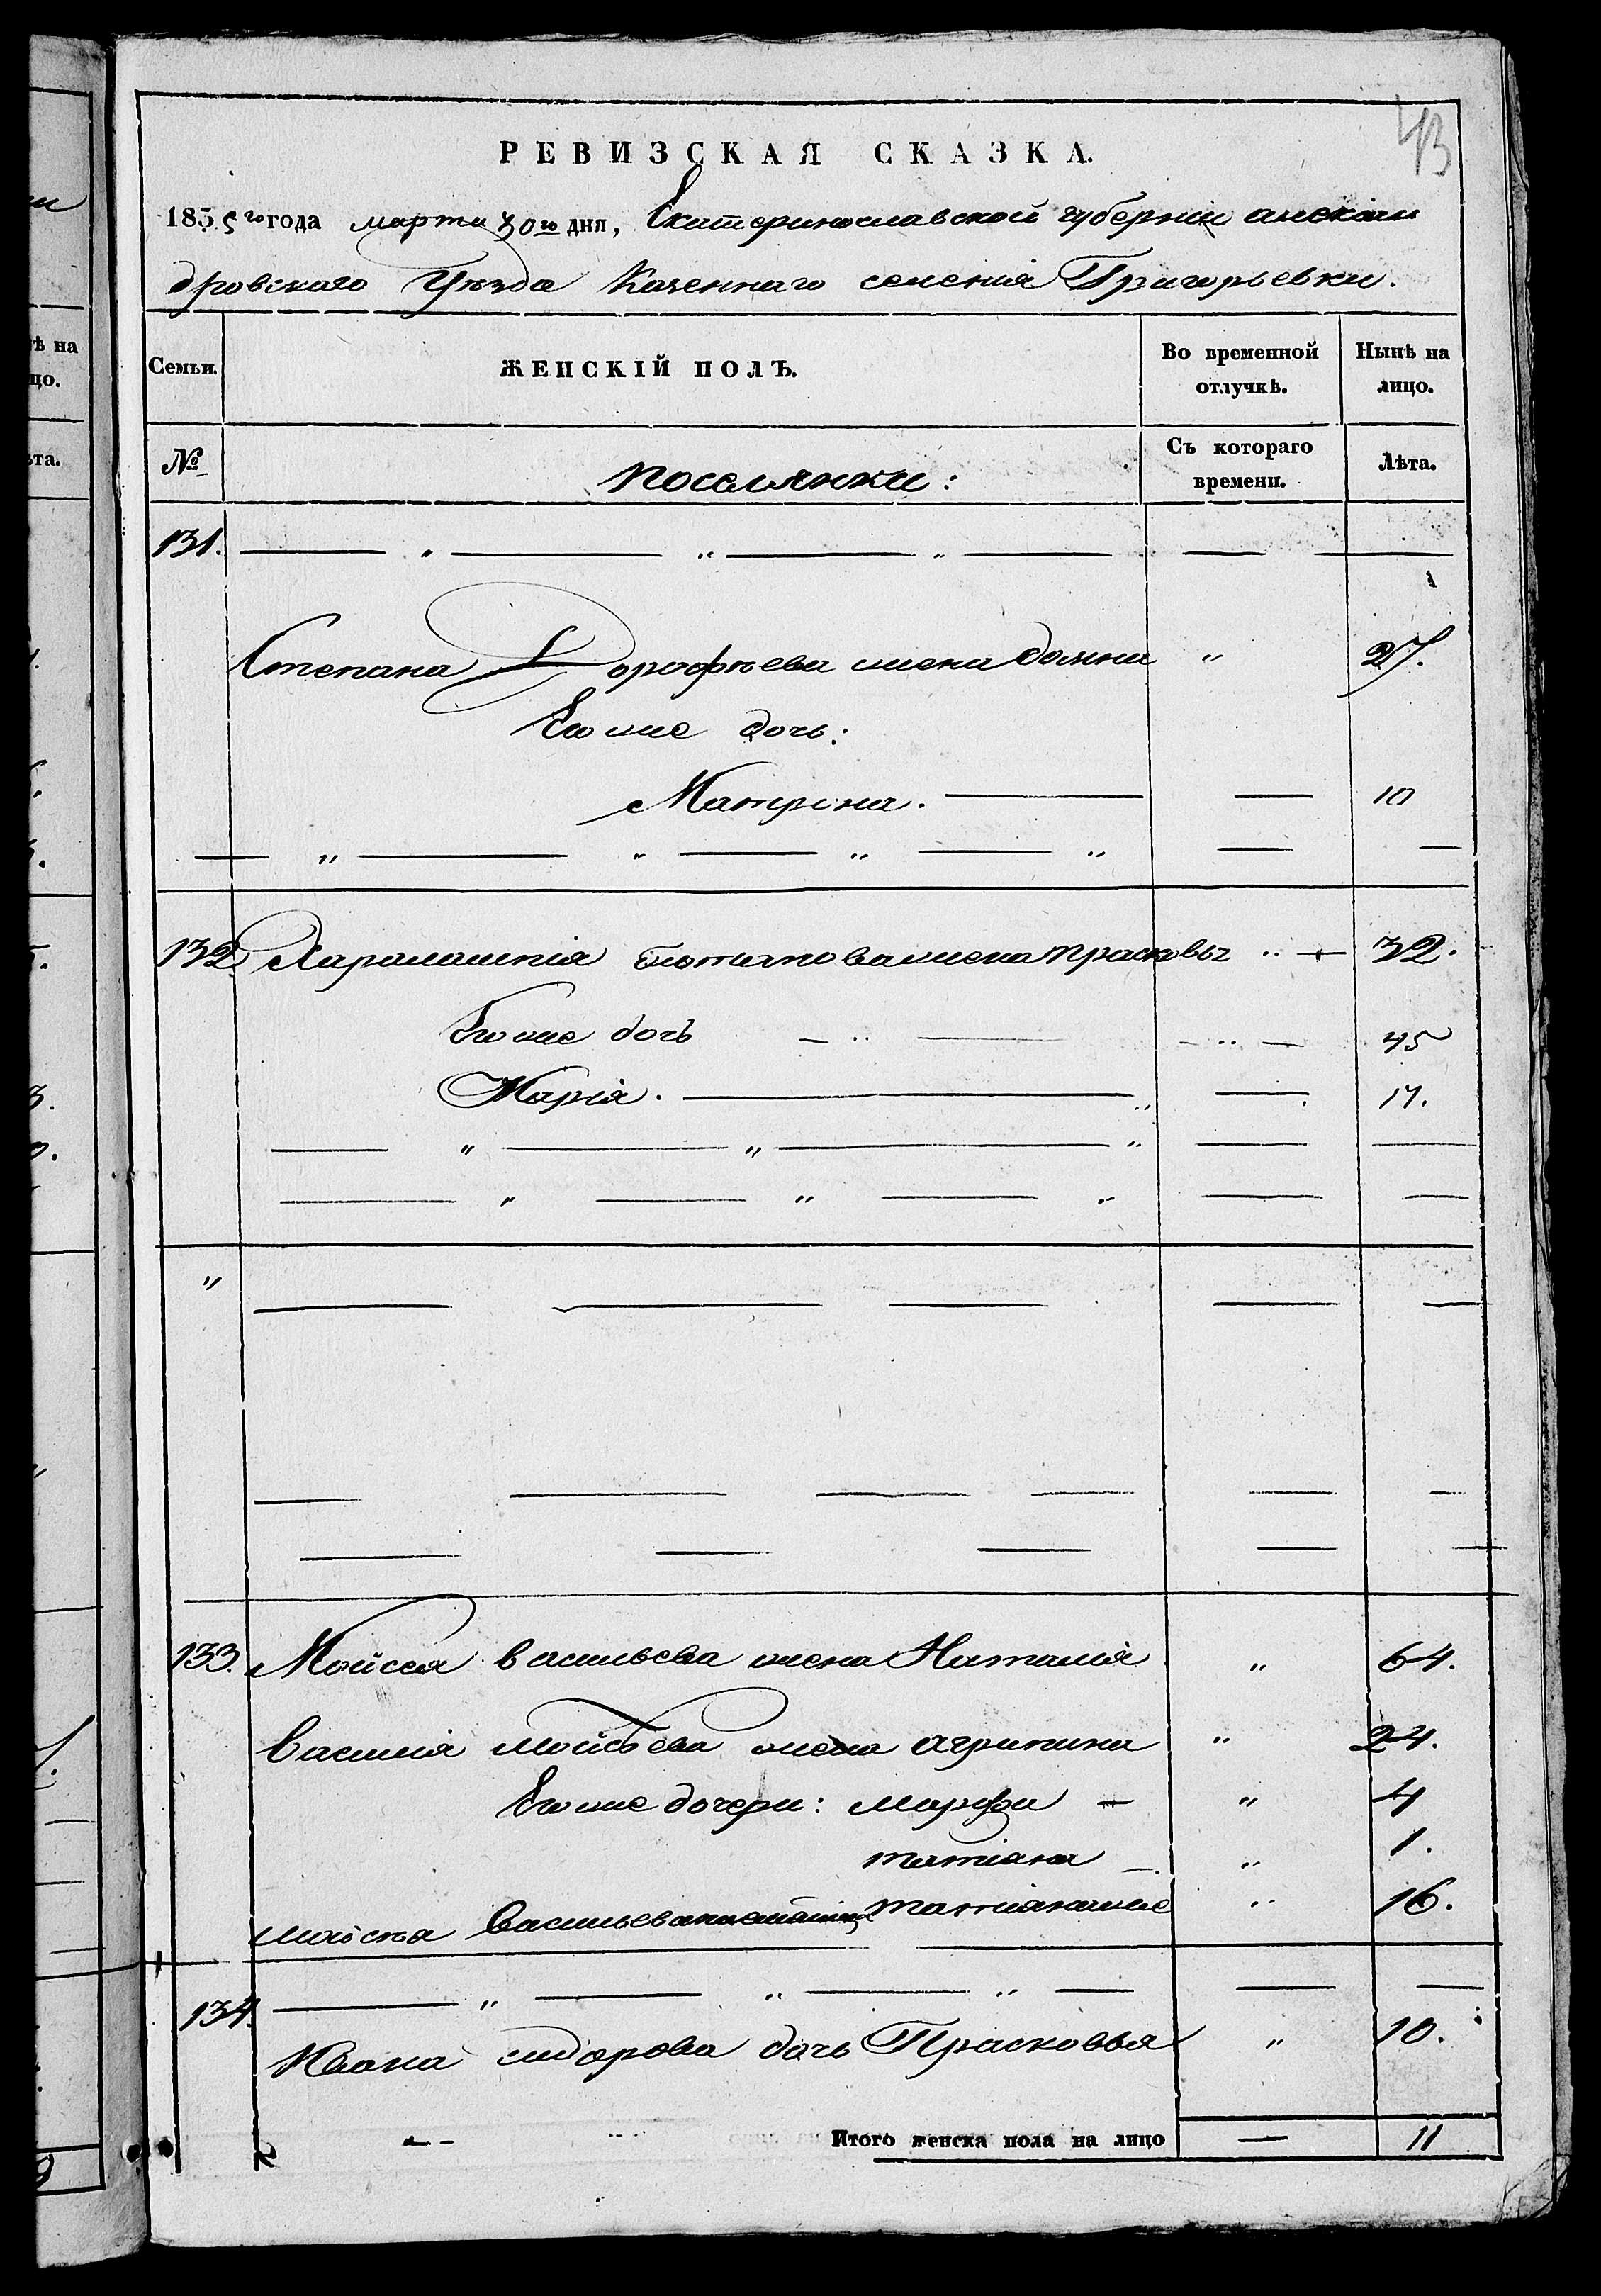 43
РЕВИЗСКАЯ СКАЗКА.
1835го года марта 30го дня, Екатеринославской губернии алексан
дровского Уезда Казеннаго селения Григорьевки.
Семьи. ЖЕНСКІЙ ПОЛЪ. Во временной отлучкѣ. Нынѣ на лицо.
№ поселянки: Съ котораго времени. Лѣта.
131.
Степана Дорофѣева жена домна " 27.
Его же дочь:
Матрона. 10
132 Харалампія жена Прасковья 32.
Его же дочь 45
Марія. 17.
"
133. Мойсея васильева жена Наталія " 64.
Василія мойсѣева жена агрипина " 24.
Его же дочери: марфа " 4
татіана " 1.
мойсѣя Васильева татіана 16.
134.
Ивана сидорова дочь Прасковья " 10.
Итого женска пола на лицо — 11
ѣ на
цо.
ѣта.